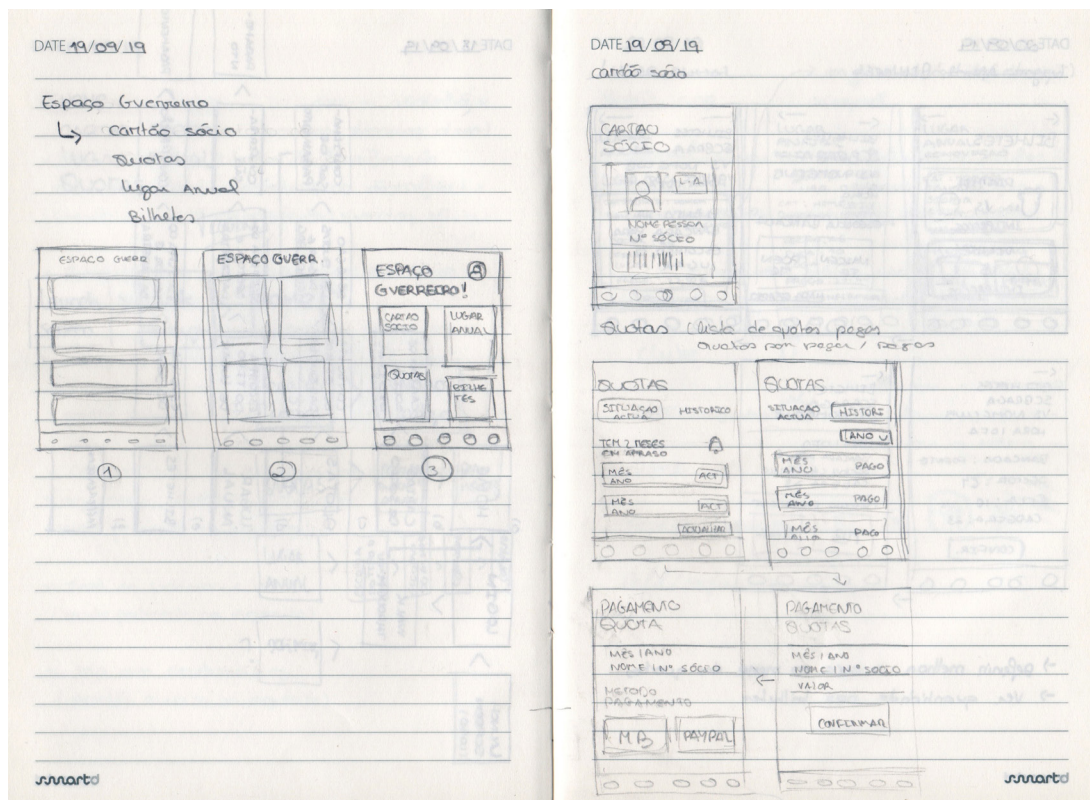 DATE 19/09/19
Espaço Guerreiro
↳ Cartão sócio
Quotas
Lugar Anual
Bilhetes
ESPAÇO GUERR
ESPAÇO GUERR
ESPAÇO
GUERREIRO!
CARTAO
SÓCIO
LUGAR
ANUAL
QUOTAS
BILHE
TES
1
2
3
smartd
DATE 19/09/19
cartão sócio
CARTAO
SÓCIO
NOME PESSOA
Nº SÓCIO
Quotas
de quotas pagas
Quotas por pagar / pagas
QUOTAS
SITUAÇAO
ACTUA
HISTORICO
TEM 2 MESES
EM ATRASO
MÊS
ANO
ACT
MÊS
ANO
ACT
QUOTAS
SITUAÇAO
ACTUA
HISTORI
ANO
MÊS
ANO
PAGO
MÊS
ANO
PAGO
MÊS
PAGO
PAGAMENTO
QUOTA
MÊS / ANO
NOME / Nº SÓCIO
METODO
PAGAMENTO
MB
PAYPAL
PAGAMENTO
QUOTAS
MÊS / ANO
NOME / Nº SOCIO
VALOR
CONFIRMAR
smartd